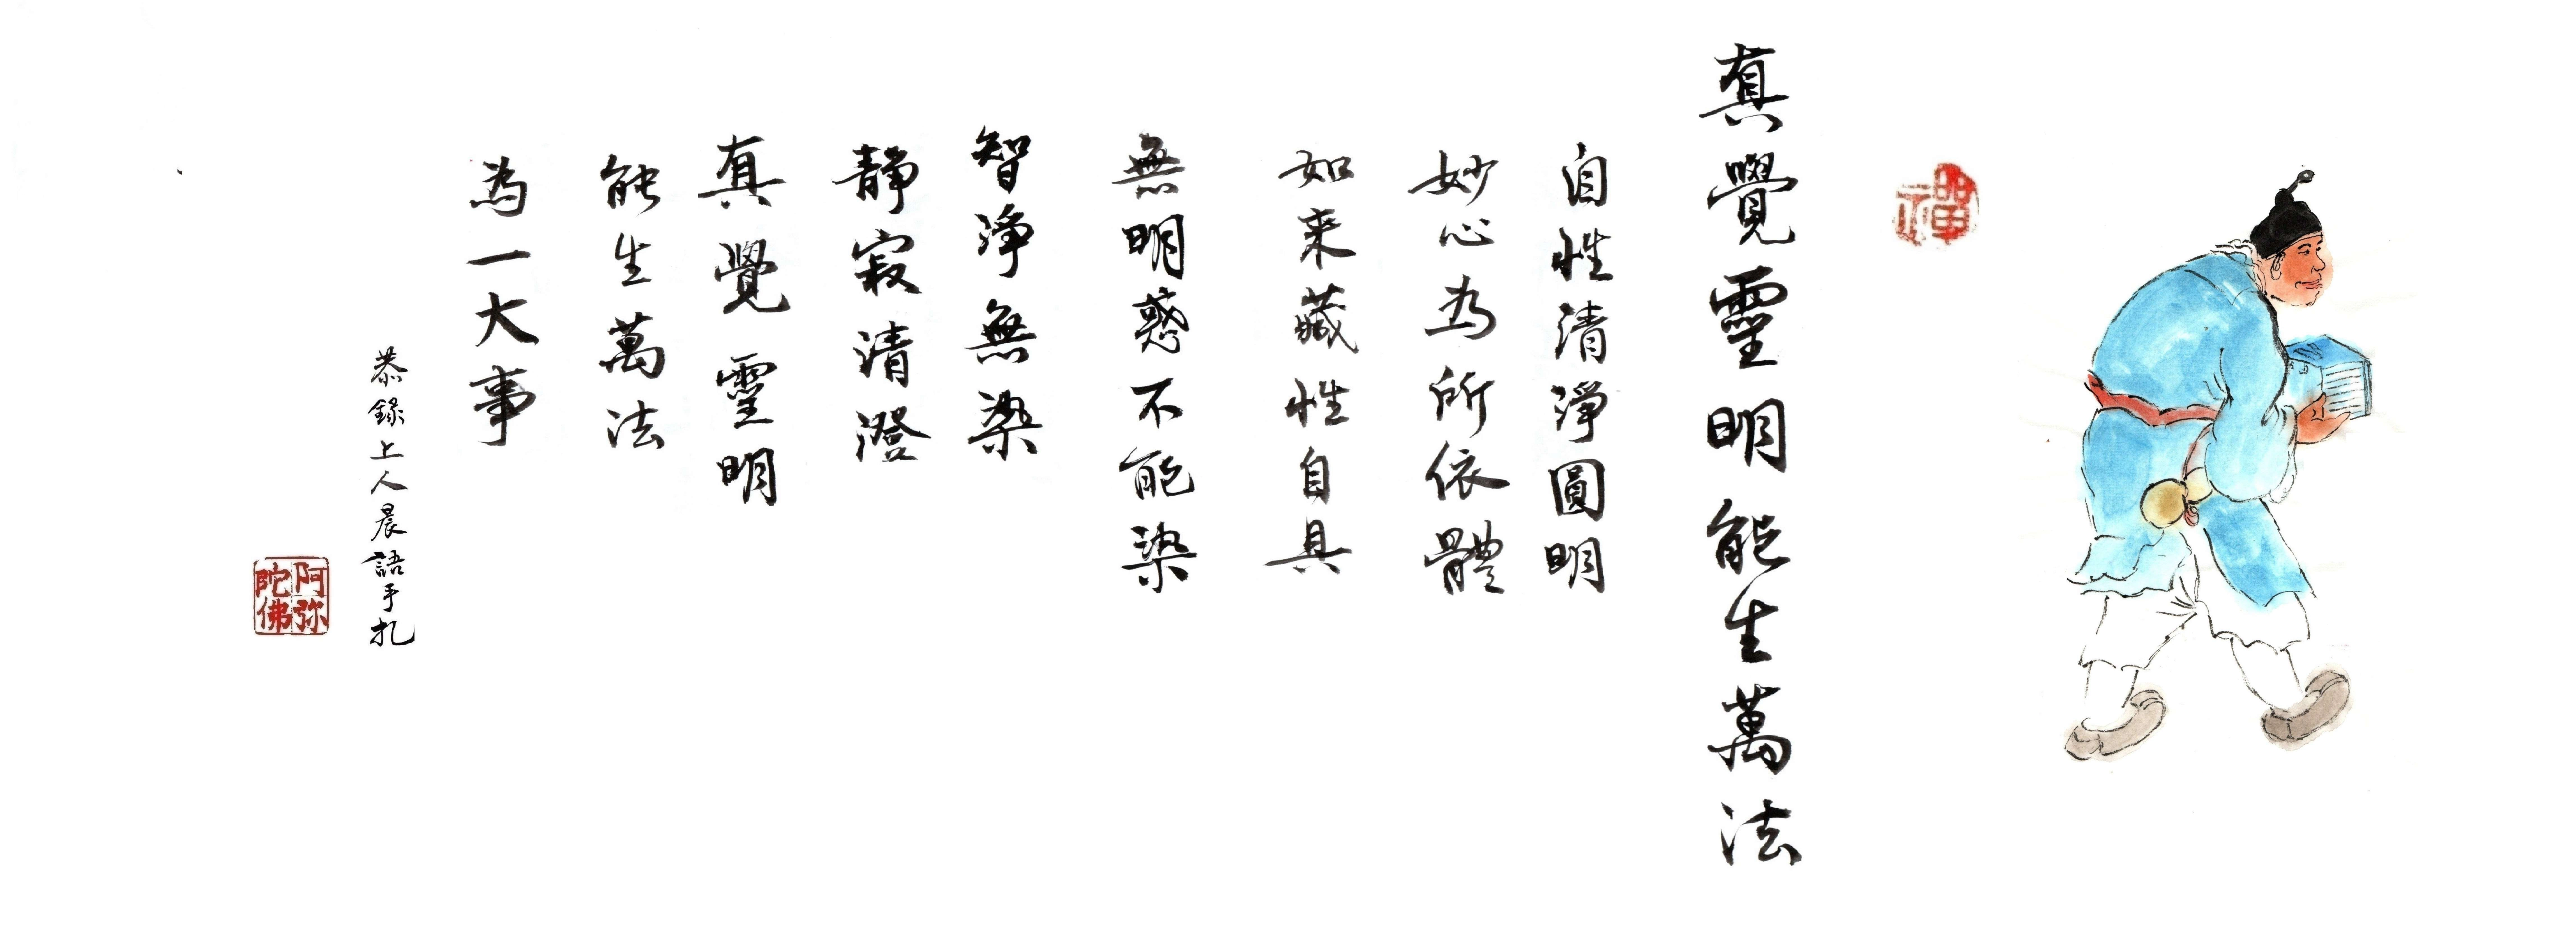 禪
真覺靈明能生萬法
自性清淨圓明
妙心为所依體
如来藏性自具
無明惑不能染
智淨無染
靜寂清澄
真覺靈明
能生萬法
為一大事
恭錄上人晨語手扎
阿弥陀佛